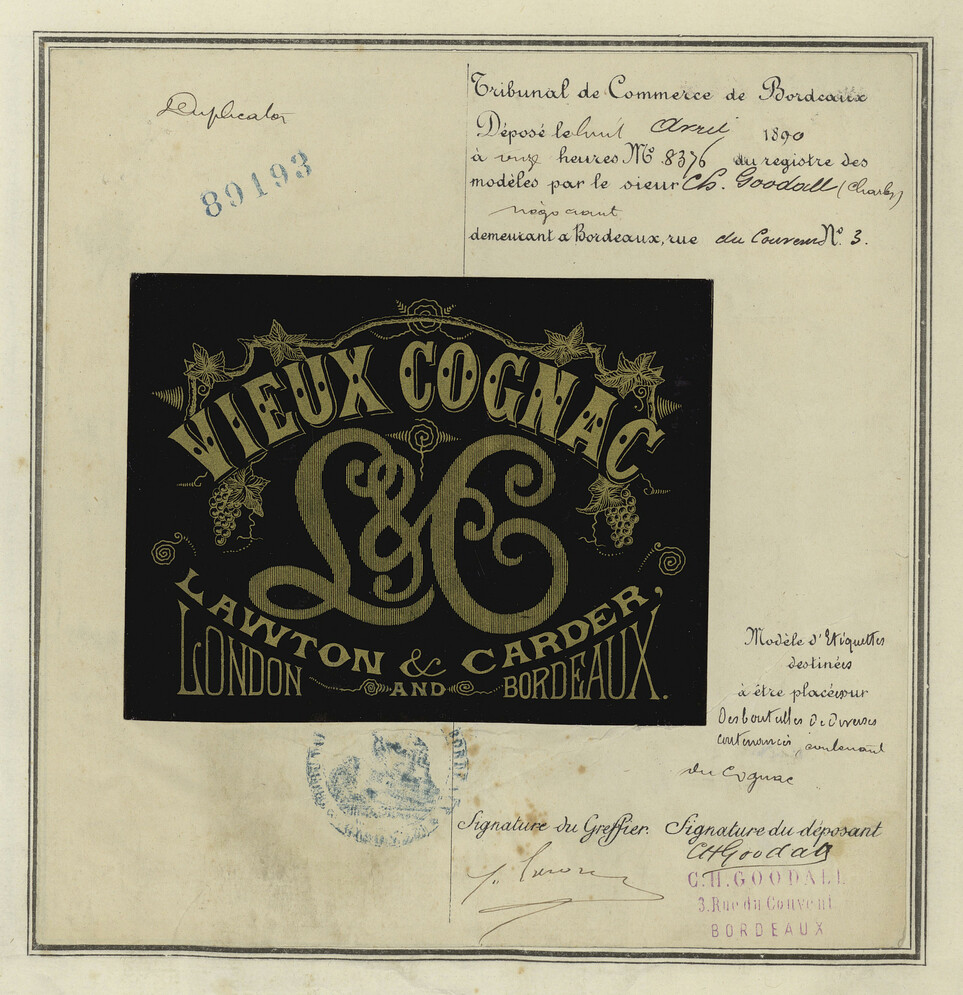 Duplicata
89193
Tribunal de Commerce de Bordeaux
Déposé le huit Avril 1890
à onze heures No. 8376 du registre des
modèles par le sieur Ch. Goodall (Charles)
négociant
demeurant à Bordeaux, rue du Couvent No. 3.
VIEUX COGNAC
L&C
LAWTON & CARDER,
LONDON AND BORDEAUX.
Modèle d'Etiquettes
destinées
à être placées sur
Des bouteilles De Diverses
contenances contenant
du Cognac
Signature du Greffier. Signature du déposant
CHGoodall
C.H. GOODALL
3. Rue du Couvent
BORDEAUX